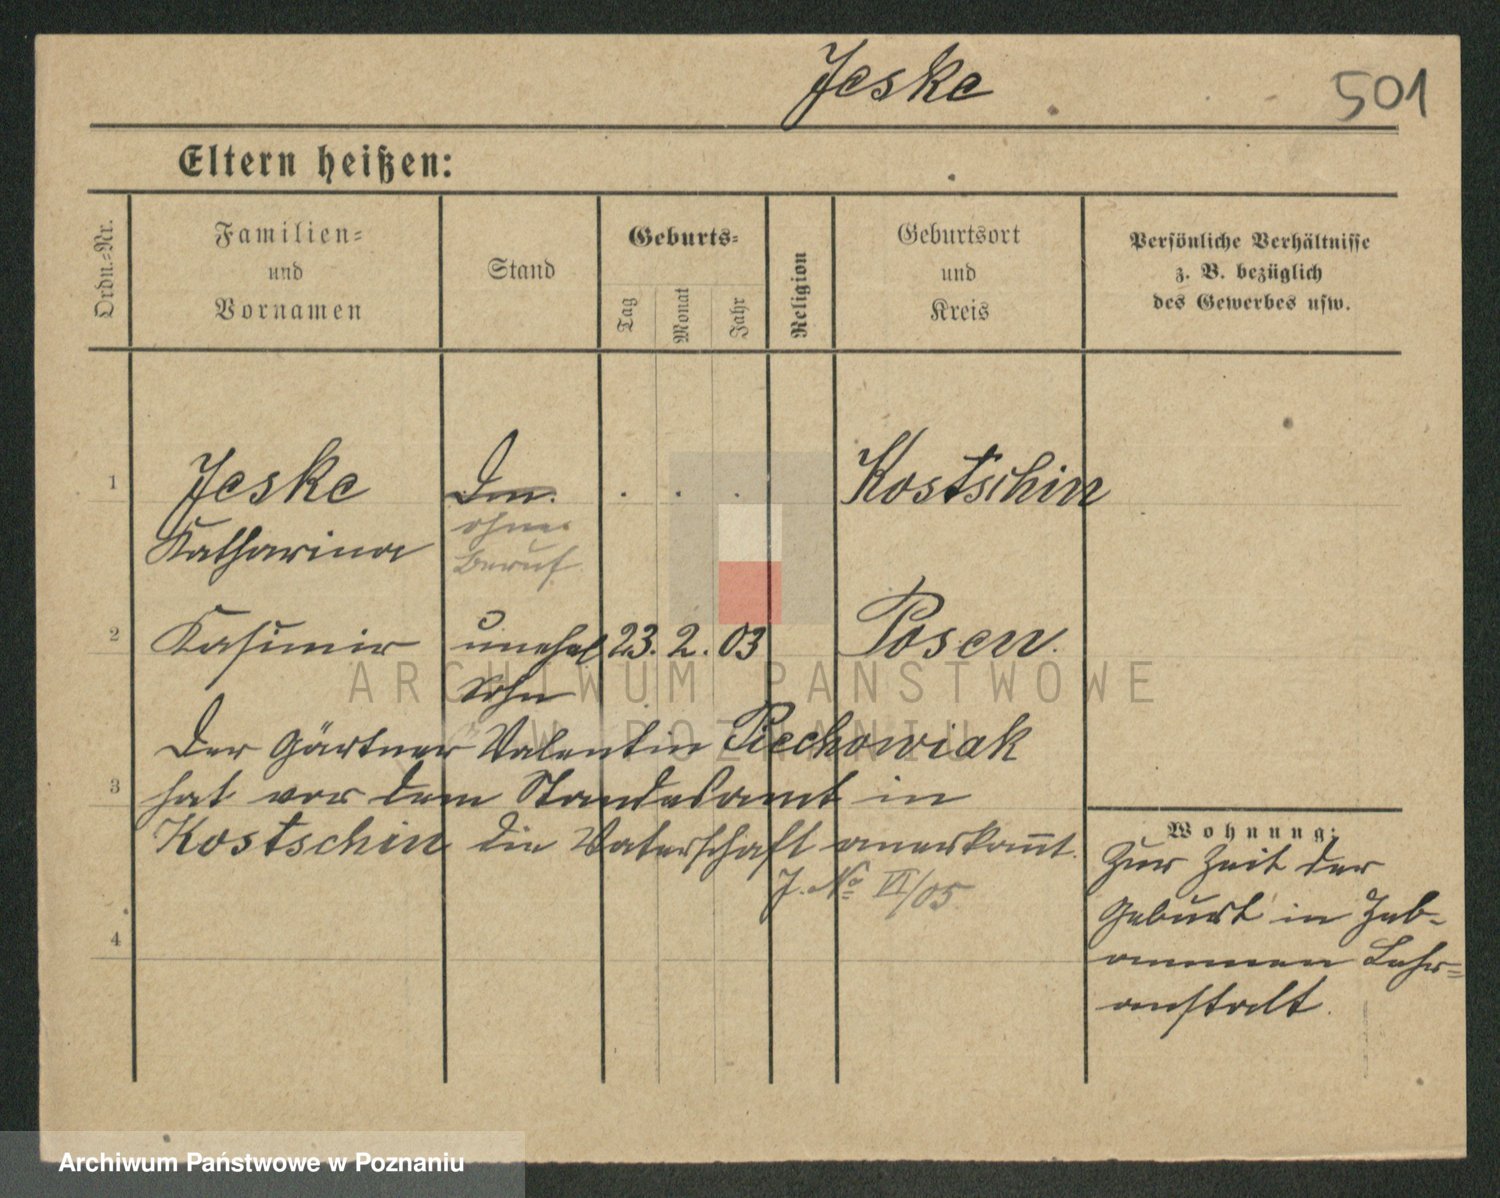 Jeske
501
Eltern heißen:
Ordn.=Nr.
Familien=
und
Vornamen
Stand
Geburts=
Tag
Monat
Jahr
Religion
Geburtsort
und
Kreis
Persönliche Verhältnisse
z. B. bezüglich
des Gewerbes usw.
1
Jeske
Katharina
ohne
Beruf
. . .
Kostschin
2
Kasimir
unehel
Sohn
23. 2. 03
Posen.
Der Gärtner Valentin Piechowiak
3
hat vor dem Standesamt in
Kostschin die Vaterschaft anerkannt.
J. No VI/05
4
Wohnung:
Zur Zeit der
Geburt in Heb-
ammen Lehr=
anstalt.
ARCHIWUM PAŃSTWOWE
W POZNANIU
Archiwum Państwowe w Poznaniu